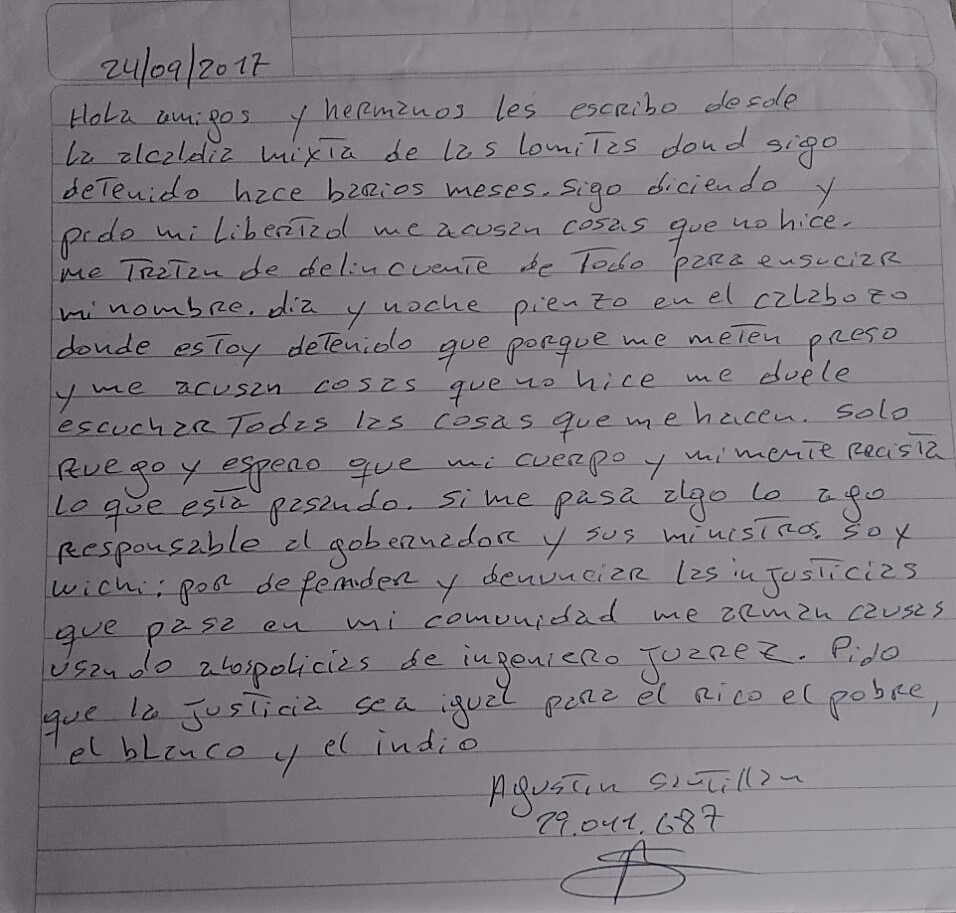 24/09/2017
Hola amigos y hermanos les escribo desde
la alcaldia mixta de las lomitas dond sigo
detenido hace barios meses. Sigo diciendo y
pido mi Libertad me acusan cosas que no hice.
me tratan de delincuente de todo para ensuciar
mi nombre. dia y noche pienzo en el calabozo
donde estoy detenido que porque me meten preso
y me acusan cosas que no hice me duele
escuchar todas las cosas que me hacen. Solo
Ruego y espero que mi cuerpo y mi mente recista
lo que esta pasando. Si me pasa algo lo ago
Responsable al gobernador y sus ministros. soy
wichi: por defemder y denunciar las injusticias
que pasa en mi comunidad me arman causas
usando a los policias de ingeniero Juarez. Pido
que la justicia sea igual para el rico el pobre,
el blanco y el indio
Agustin Santillan
29.041.687